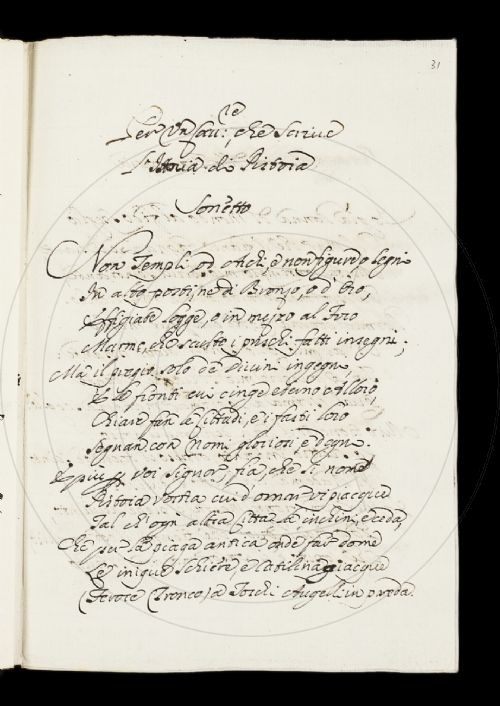 31
Per Un Cau:re che Scrive
l'Istoria di Pistoia
Sonetto
Non Templi, od Archi, e non figure, o segni
In alto posti, ne di Bronzo, o d'Oro,
Effigiate logge, o in mezzo al Foro
Marmo, che sculto i prischi fatti insegni;
Ma il pregio solo de Divini ingegni,
E le fronti cui cinge eterno Alloro,
Chiare fan le Cittadi, e i fasti loro
Segnan con Nomi gloriosi, e degni.
E più per voi Signor, fia, che si nome
Pistoia Vostra cui d'ornar vi piacque
Tal ch'ogni altra Città le inchini, e ceda,
Che per la piaga antica onde fur dome
Le inique Schiere, e Catilina giacque
Feroce Tronco, a Torchi Augelli in preda.